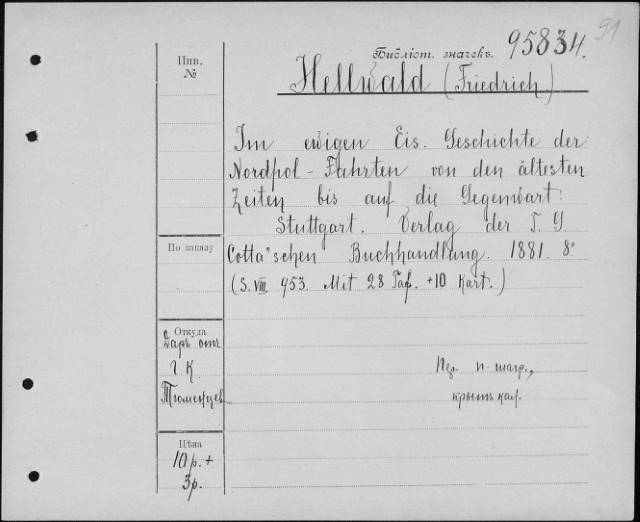 91
Библіот. значекъ. 95834.
Инв.
№
Hellwald (Friedrich)
Im ewigen Eis. Geschichte der
Nordpol-Fahrten von den ältesten
Zeiten bis auf die Gegenwart.
Stuttgart. Verlag der J. G.
Cotta'schen Buchhandlung. 1881. 8°
(S. VIII 953. Mit 28 Taf. + 10 Kart.)
По заказу
Откуда
Даръ отъ
Г. К.
Тюменцев
п-шагр.,
Цѣна
10 р. +
3 р.